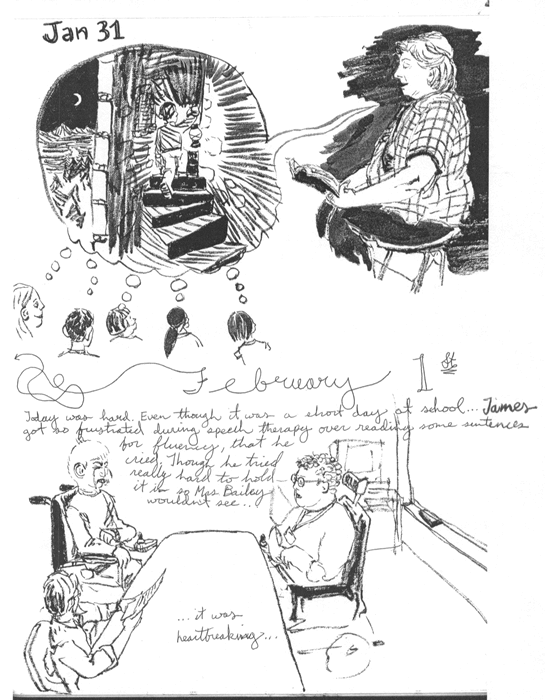 Jan 31
February 1st
Today was hard. Even though it was a short day at school... James
got so frustrated during speech therapy over reading some sentences
for fluency, that he
cried. Though he tried
really hard to hold
it in so Mrs. Bailey
wouldn't see...
...it was
heartbreaking...